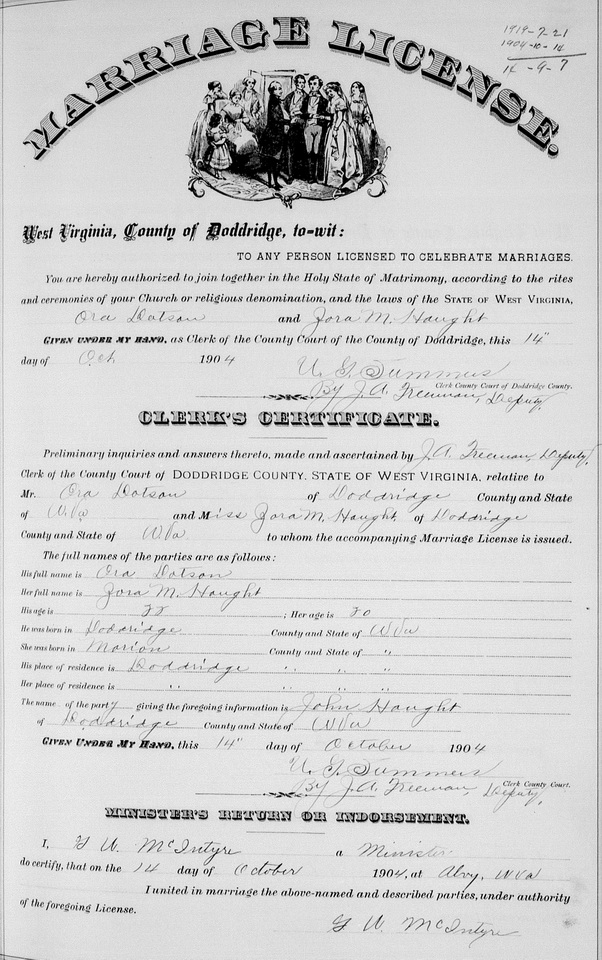 MARRIAGE LICENSE.
1919-7-21
1904-10-14
14-9-7
West Virginia, County of Doddridge, to-wit:
TO ANY PERSON LICENSED TO CELEBRATE MARRIAGES.
You are hereby authorized to join together in the Holy State of Matrimony, according to the rites
and ceremonies of your Church or religious denomination, and the laws of the STATE OF WEST VIRGINIA,
Ora Dotson and Zora M. Haught
GIVEN UNDER MY HAND, as Clerk of the County Court of the County of Doddridge, this 14"
day of Oct 1904
U. G. Summers
Clerk County Court of Doddridge County.
By J. A. Freeman, Deputy.
CLERK'S CERTIFICATE.
Preliminary inquiries and answers thereto, made and ascertained by J. A. Freeman, Deputy,
Clerk of the County Court of DODDRIDGE COUNTY, STATE OF WEST VIRGINIA, relative to
Mr. Ora Dotson of Doddridge County and State
of W.Va and Miss Zora M. Haught. of Doddridge
County and State of W Va to whom the accompanying Marriage License is issued.
The full names of the parties are as follows:
His full name is Ora Dotson
Her full name is Zora M. Haught
His age is 22; Her age is 20
He was born in Doddridge County and State of W Va
She was born in Marion County and State of "
His place of residence is Doddridge " " "
Her place of residence is " " " "
The name of the party giving the foregoing information is John Haught
of Doddridge County and State of W Va
GIVEN UNDER MY HAND, this 14" day of October 1904
U. G. Summers
Clerk County Court.
By J. A. Freeman, Deputy.
MINISTER'S RETURN OR INDORSEMENT.
I, G W. McIntyre a Minister
do certify, that on the 14 day of October 1904, at Alvy, W Va
I united in marriage the above-named and described parties, under authority
of the foregoing License.
G W. McIntyre